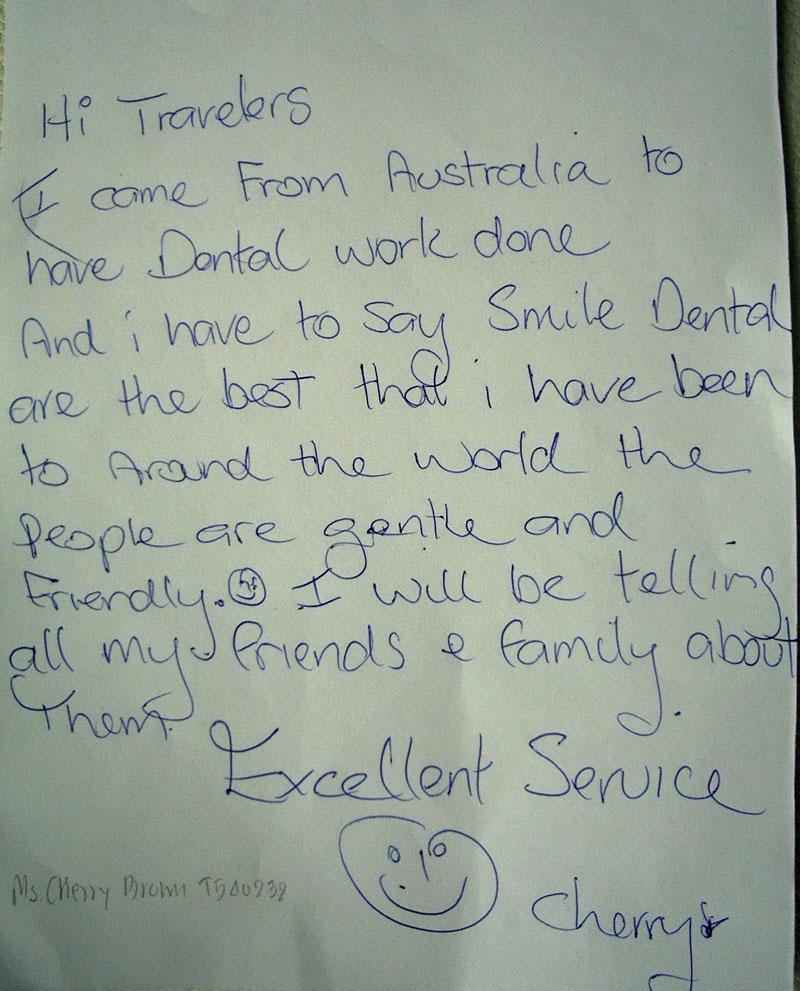 Hi Travelers
I came From Australia to
have Dental work done
And i have to say Smile Dental
are the best that i have been
to Around the world the
People are gentle and
Friendly. I will be telling
all my friends & family about
Them.
Excellent Service
Cherry
Ms. Cherry Brown